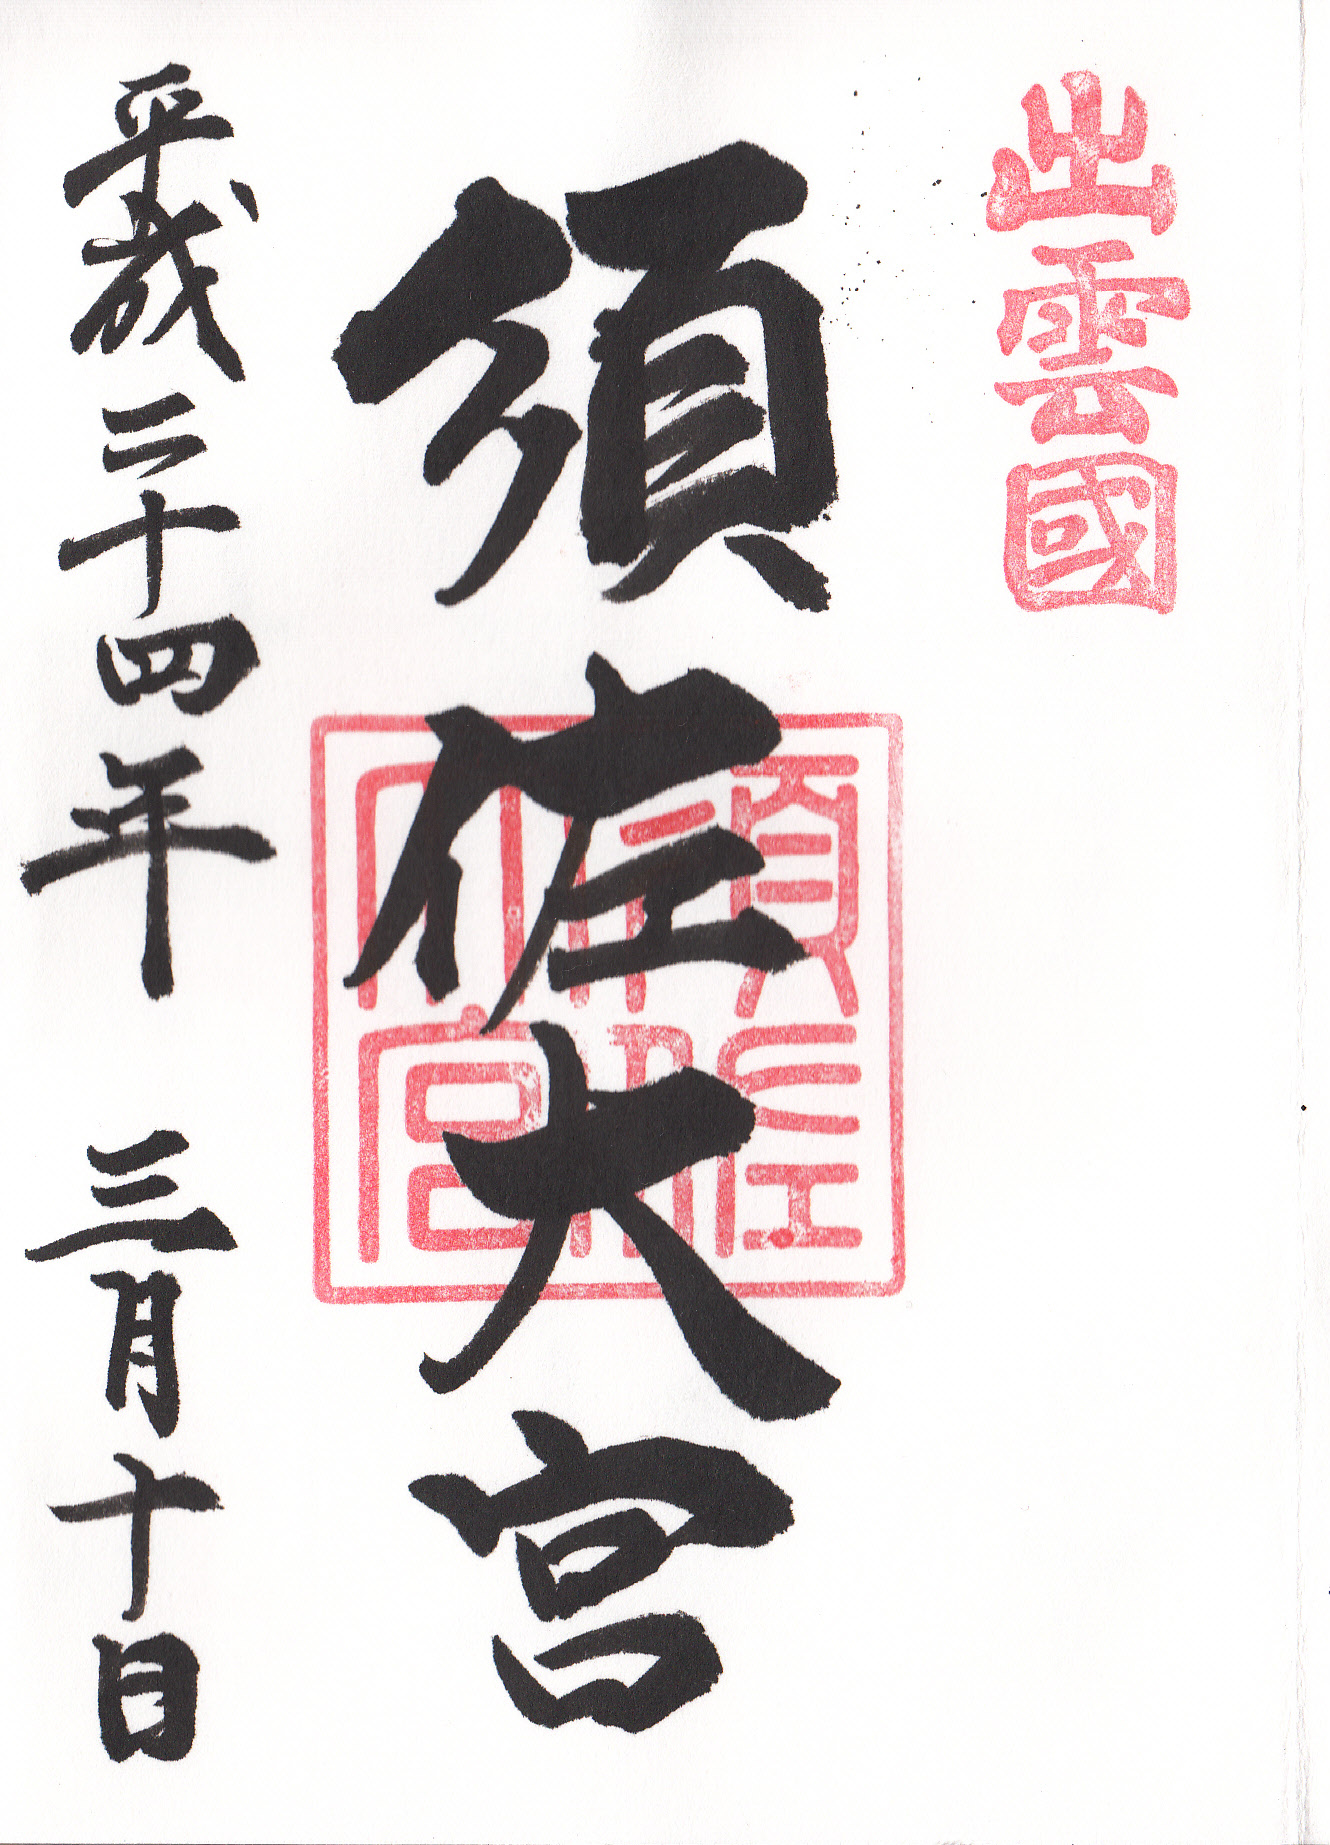 出雲國
須佐大宮
平成二十四年 三月十日